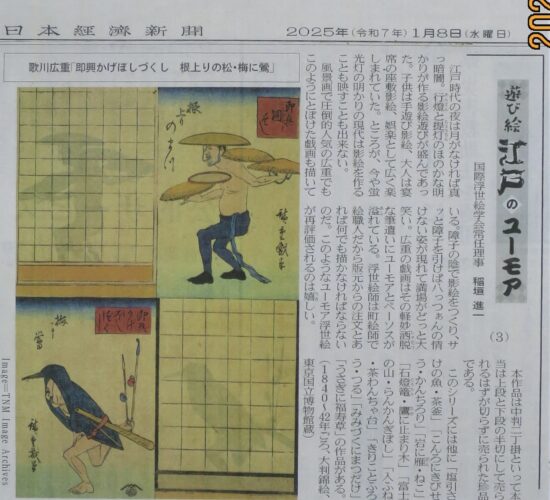 日本経済新聞
2025年(令和7年)1月8日(水曜日)
202
歌川広重「即興かげぼしづくし 根上りの松・梅に鶯」
遊び絵 江戸のユーモア
国際浮世絵学会常任理事 稲垣 進一
(3)
江戸時代の夜は月がなければ真
っ暗闇。行燈と提灯のほのかな明
かりが作る影絵遊びが盛んであっ
た。子供は手遊び影絵、大人は宴
席の座敷影絵、娯楽として広く楽
しまれていた。ところが、今や蛍
光灯の明かりの現代は影絵を作る
ことも映すことも出来ない。
風景画で圧倒的人気の広重でも
このようにとぼけた戯画も描いて
いる。障子の陰で影絵をつくり、サ
ッと障子を引けば八っつぁんの情
けない姿が現れて満場がどっと大
笑い。広重の戯画はその軽妙洒脱
な筆遣いにユーモアとペーソスが
溢れている。浮世絵師は町絵師で
絵職人だから版元からの注文とあ
れば何でも描かなければならない
のだ。このようなユーモア浮世絵
が再評価されるのは嬉しい。
本作品は中判二丁掛といって本
当は上段と下段の半切にして売ら
れるはずが切らずに売られた珍品
である。
このシリーズには他に「塩引
けの魚・茶釜」「こんろにきびせ
う・かんちろり」「岩に雁・ねこ」
「石燈篭・鷹にとまり木」「富士
の山・らんかんぎぼし」「入ふね・
茶わんちゃ台」「きりこどふろ
う・つる」「みみづくにまつだけ」
「うさぎに福寿草」の作品がある。
(1840～42年ごろ、大判錦絵、
東京国立博物館蔵)
根上りのまつ
梅に鶯
Image=TNM Image Archives